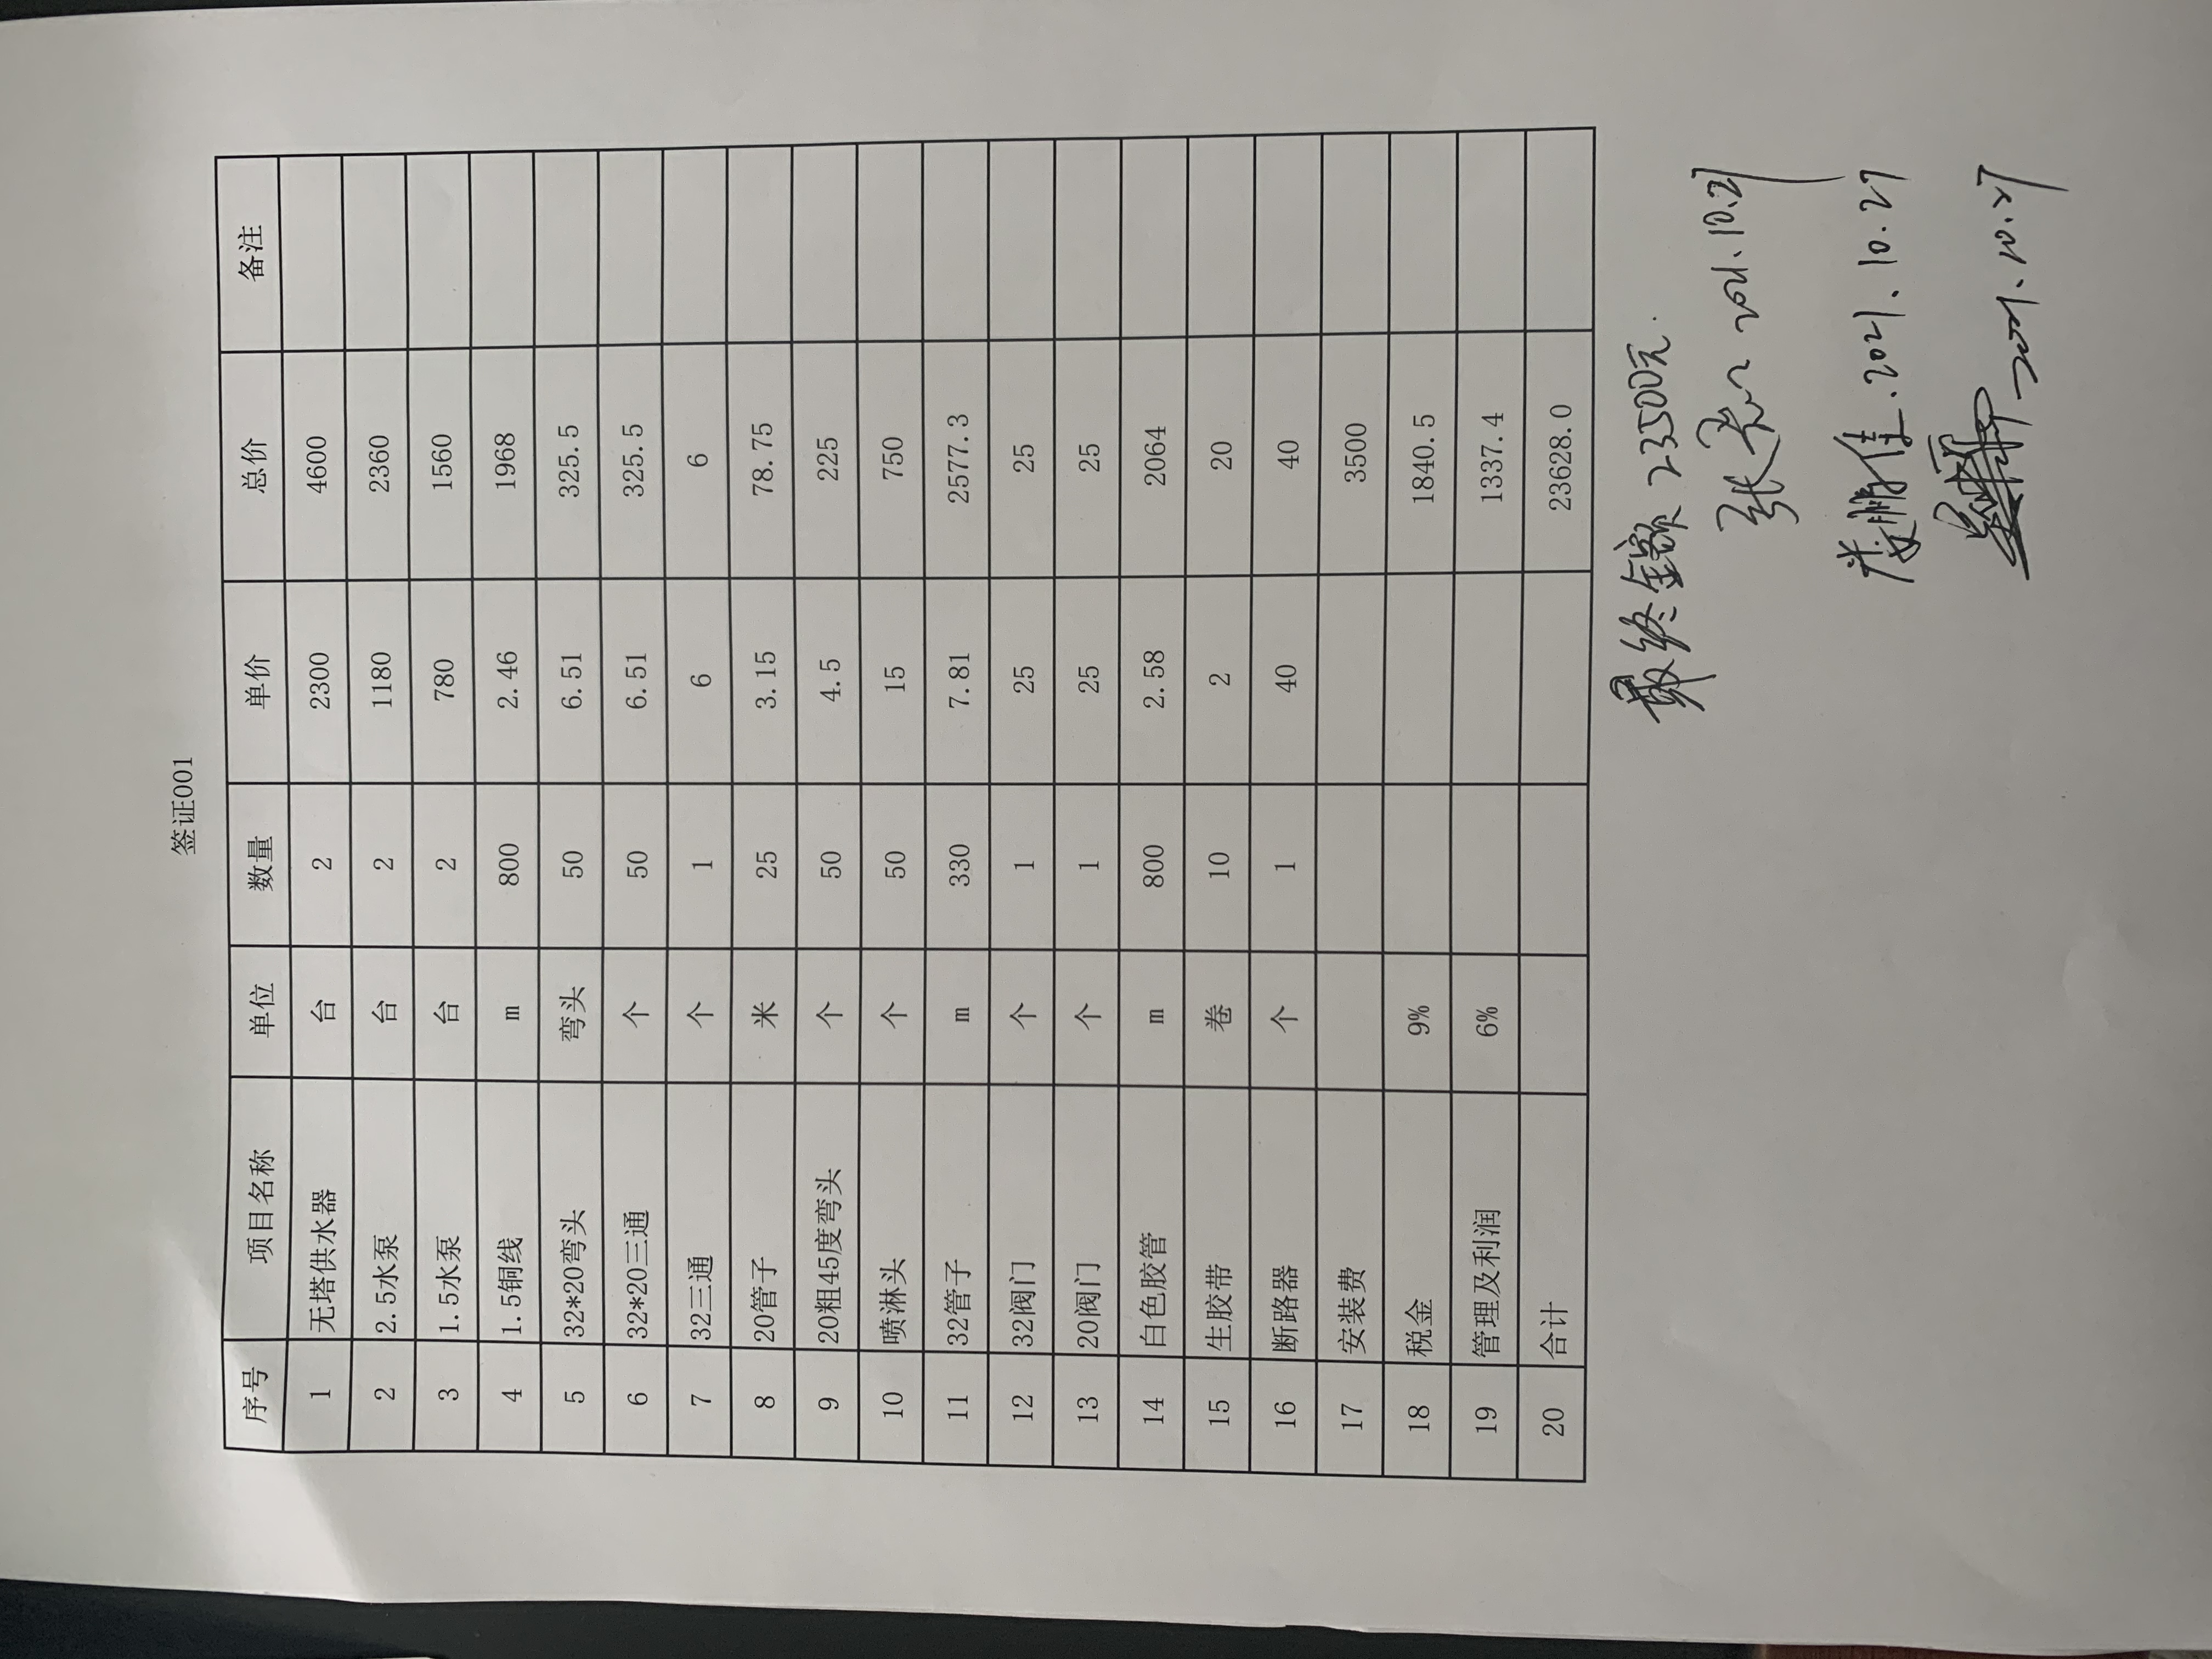 签证001
序号 项目名称 单位 数量 单价 总价 备注
1 无塔供水器 台 2 2300 4600
2 2.5水泵 台 2 1180 2360
3 1.5水泵 台 2 780 1560
4 1.5铜线 m 800 2.46 1968
5 32*20弯头 弯头 50 6.51 325.5
6 32*20三通 个 50 6.51 325.5
7 32三通 个 1 6 6
8 20管子 米 25 3.15 78.75
9 20粗45度弯头 个 50 4.5 225
10 喷淋头 个 50 15 750
11 32管子 m 330 7.81 2577.3
12 32阀门 个 1 25 25
13 20阀门 个 1 25 25
14 白色胶管 m 800 2.58 2064
15 生胶带 卷 10 2 20
16 断路器 个 1 40 40
17 安装费 3500
18 税金 9% 1840.5
19 管理及利润 6% 1337.4
20 合计 23628.0
最终金额 23500元.
张 2021.10.27
娄鹏佳.2021.10.27
2021.10.27